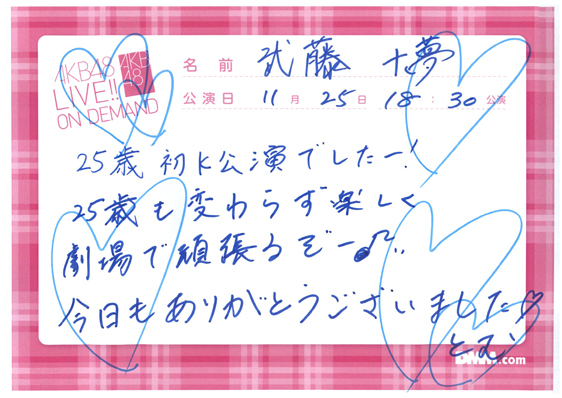 AKB48
LIVE!!
ON DEMAND
AKB
48
名前 武藤 十夢
公演日 11月 25日 18:30 公演
25歳 初K公演でしたー!
25歳も変わらず楽しく
劇場で頑張るぞー♪
今日もありがとうございました♡
とむ
.com